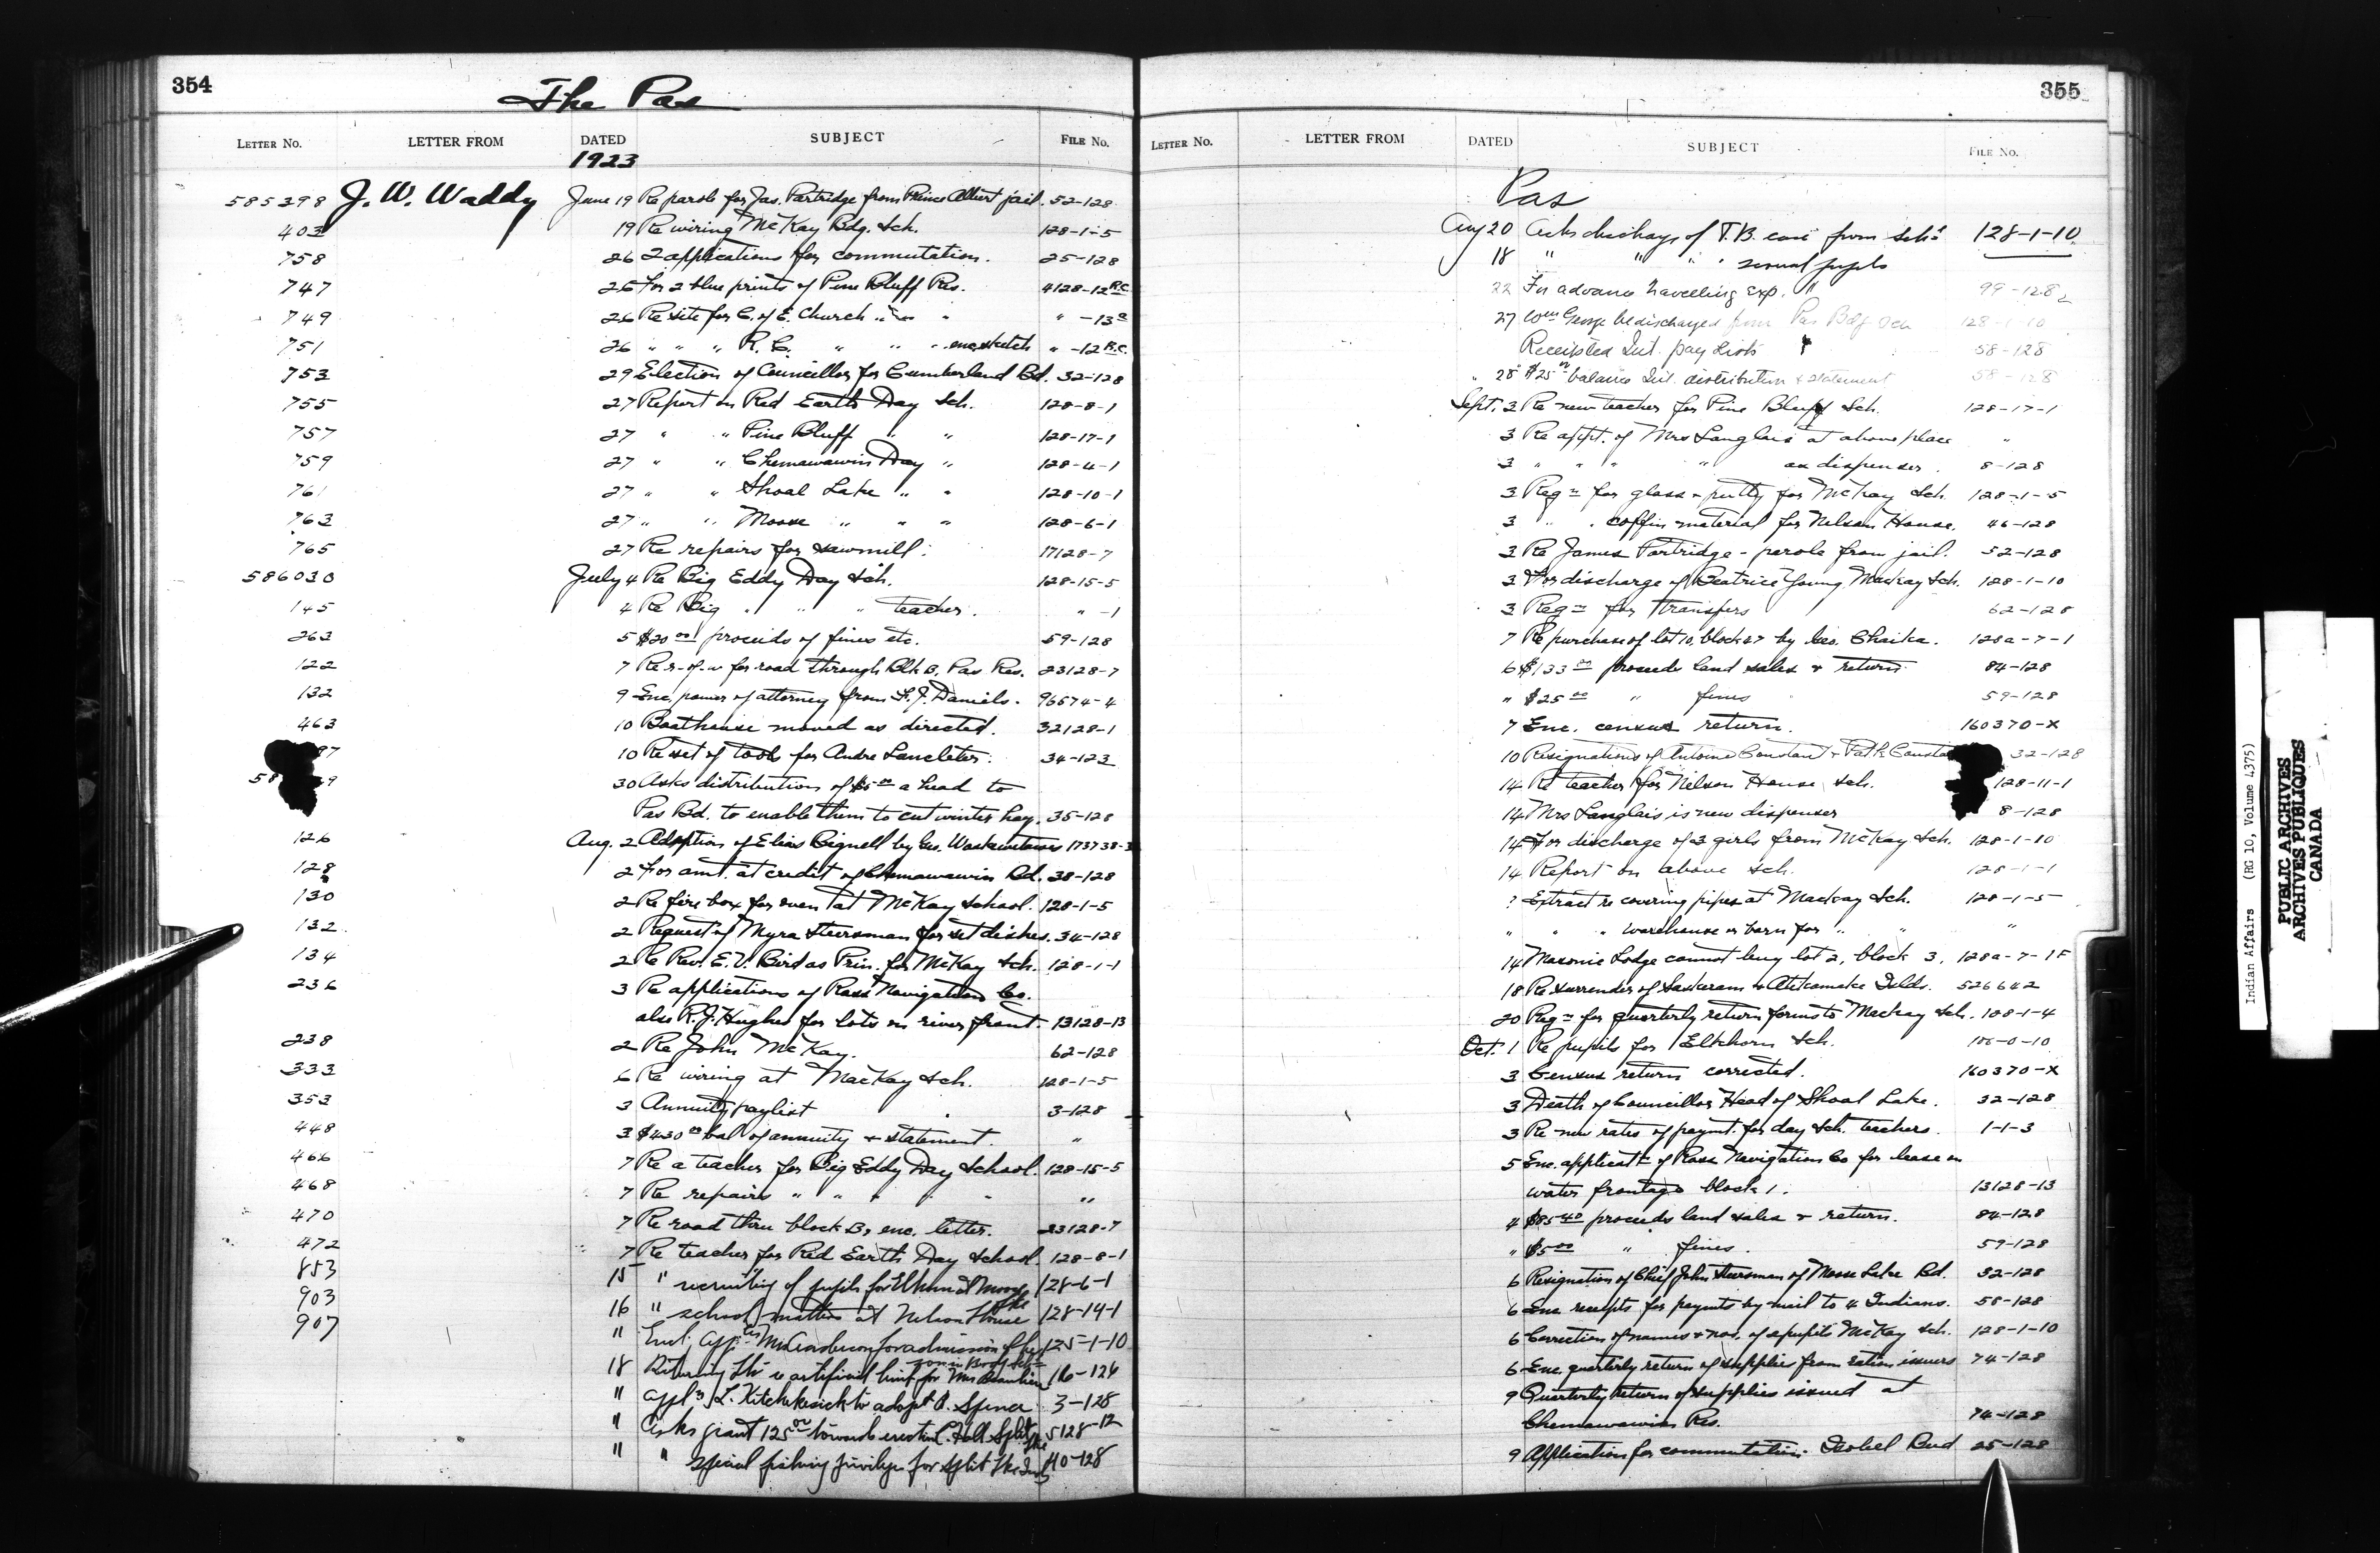 354
The Pas
LETTER NO. LETTER FROM DATED SUBJECT FILE NO.
1923
585298 J. W. Waddy June 19 Re parole for Jas. Partridge from Prince Albert jail. 52-128
403 19 Re wiring McKay Bdg. Sch. 128-1-5
758 26 2 applications for commutation. 25-128
747 26 For 2 blue prints of Pine Bluff Res. 4128-12 R.C.
749 26 Re site for C. of E. Church " " " " -13
751 26 " " " R. C. " " " enc. sketch " -12 R.C.
753 29 Election of Councillor for Cumberland Bd. 32-128
755 27 Report on Red Earth Day Sch. 128-8-1
757 27 " " Pine Bluff " " 128-17-1
759 27 " " Chemawawin Day " 128-4-1
761 27 " " Shoal Lake " " 128-10-1
763 27 " " Moose " " " 128-6-1
765 27 Re repairs for sawmill. 17128-7
586030 July 4 Re Big Eddy Day Sch. 128-15-5
145 4 Re Big " " " teacher. " -1
263 5 $20 00 proceeds of fines etc. 59-128
122 7 Re r-of-w for road through Blk B. Pas Res. 23128-7
132 9 Enc. power of attorney from Daniels. 96574-4
463 10 Boathouse moved as directed. 32128-1
87 10 Re set of tools for Andre Lancleter. 34-123
58 9 30 Asks distribution of $5 00 a head to
Pas Bd. to enable them to cut winter hay. 35-128
126 Aug. 2 Adoption of Elias Bignell by Geo. 173738-
128 2 For amt. at credit of Chemawawin Bd. 38-128
130 2 Re fire box for oven at McKay School. 128-1-5
132 2 Request of Myra Steersman for set dishes. 34-128
134 2 Re Rev. E. V. Bird as Prin. for McKay Sch. 128-1-1
236 3 Re applications of Ross Navigation Co.
also R. J. Hughes for lots on river front. 13128-13
238 2 Re John McKay. 62-128
333 6 Re wiring at MacKay Sch. 128-1-5
353 3 Annuity paylist 3-128
448 3 $430 00 bal of annuity & statement. "
466 7 Re a teacher for Big Eddy Day School. 128-15-5
468 7 Re repairs " " " " " "
470 7 Re road thru block B, enc. letter. 23128-7
472 7 Re teacher for Red Earth Day School. 128-8-1
853 15 " recruiting of pupils for Elkhorn at Moose Lke 128-6-1
903 16 " school matters at Nelson House 128-14-1
907 " Encl. for admission 125-1-10
18 Returning re artificial limb for Mrs 16-126
" appl L. Kitchekesick to adopt Spence 3-128
" Asks grant 125 00 towards erection C. Hall Split Lke 5128-12
" " special fishing privileges for Split Lke 40-128
355
LETTER NO. LETTER FROM DATED SUBJECT FILE NO.
Pas
Aug 20 Asks discharge of T.B. case from Schl 128-1-10
18 " " " " several pupils
22 For advance travelling exp. " 99-128
27 Wm George be discharged from Pas Bdg Sch 128-1-10
Receipted Int. pay lists 58-128
" 28 $25 balance Int. distribution & statement 58-128
Sept. 3 Re new teacher for Pine Bluff Sch. 128-17-1
3 Re appt. of Mrs Langlais at above place "
3 " " " " as dispenser. 8-128
3 Reqn for glass & putty for McKay Sch. 128-1-5
3 " " coffin material for Nelson House. 46-128
3 Re James Partridge - parole from jail. 52-128
3 For discharge of Beatrice Young Mackay Sch. 128-1-10
3 Reqn for transfers 62-128
7 Re purchase of lot 10, block 27 by Geo. Chaika. 128a-7-1
6 $133 00 proceeds land sales & return. 84-128
" $25 00 " fines 59-128
7 Enc. census return. 160370-X
10 Resignations of Antoine Constant & Pat. R. Consta 32-128
14 Re teacher for Nelson House Sch. 128-11-1
14 Mrs Langlais is new dispenser 8-128
14 For discharge of 3 girls from McKay Sch. 128-1-10
14 Report on above Sch. 128-1-1
? Extract re covering pipes at Mackay Sch. 128-1-5
" " " warehouse or barn for " " "
14 Masonic Lodge cannot buy lot 2, block 3. 128a-7-1F
18 Re surrender of Saskeram & Atikameke Islds. 526642
20 Reqn for quarterly return forms to Mackay Sch. 108-1-4
Oct. 1 Re pupils for Elkhorn Sch. 106-0-10
3 Census return corrected. 160370-X
3 Death of Councillor Head of Shoal Lake. 32-128
3 Re new rates of paymt. for day sch. teachers. 1-1-3
5 Enc. applicatn of Ross Navigation Co for lease on
water frontage block 1. 13128-13
4 $85 40 proceeds land sales & return. 84-128
" $5 00 " fines. 59-128
6 Resignation of Chief John Steersman of Moose Lake Bd. 32-128
6 Enc. receipts for paymts by mail to 4 Indians. 58-128
6 Correction of names & nos. of 2 pupils McKay Sch. 128-1-10
6 Enc. quarterly return of supplies from ration issuers 74-128
9 Quarterly return of supplies issued at
Chemawawin Res. 74-128
9 Application for commutation. Isobel Bud 25-128
Indian Affairs (RG 10, Volume 4375)
PUBLIC ARCHIVES
ARCHIVES PUBLIQUES
CANADA